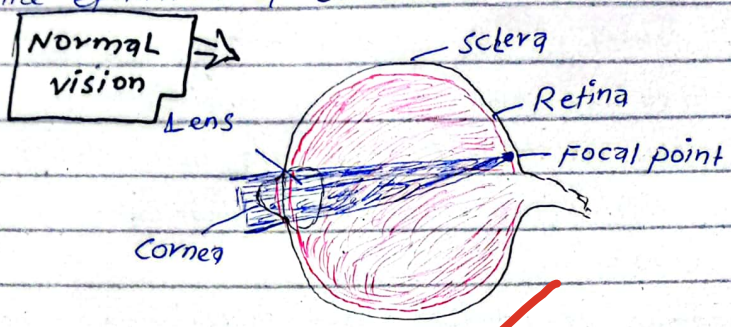 Normal
vision
Sclera
Retina
Lens
Focal point
Cornea